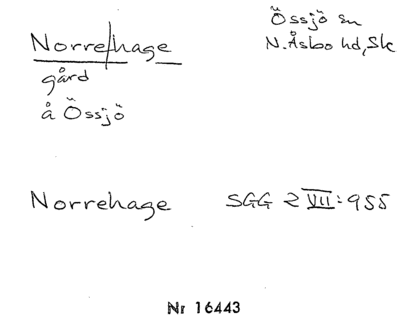 Norrehage
Össjö sn
N.Åsbo hd, Sk
gård
å Össjö
Norrehage SGG 2 VII:955
Nr 16443